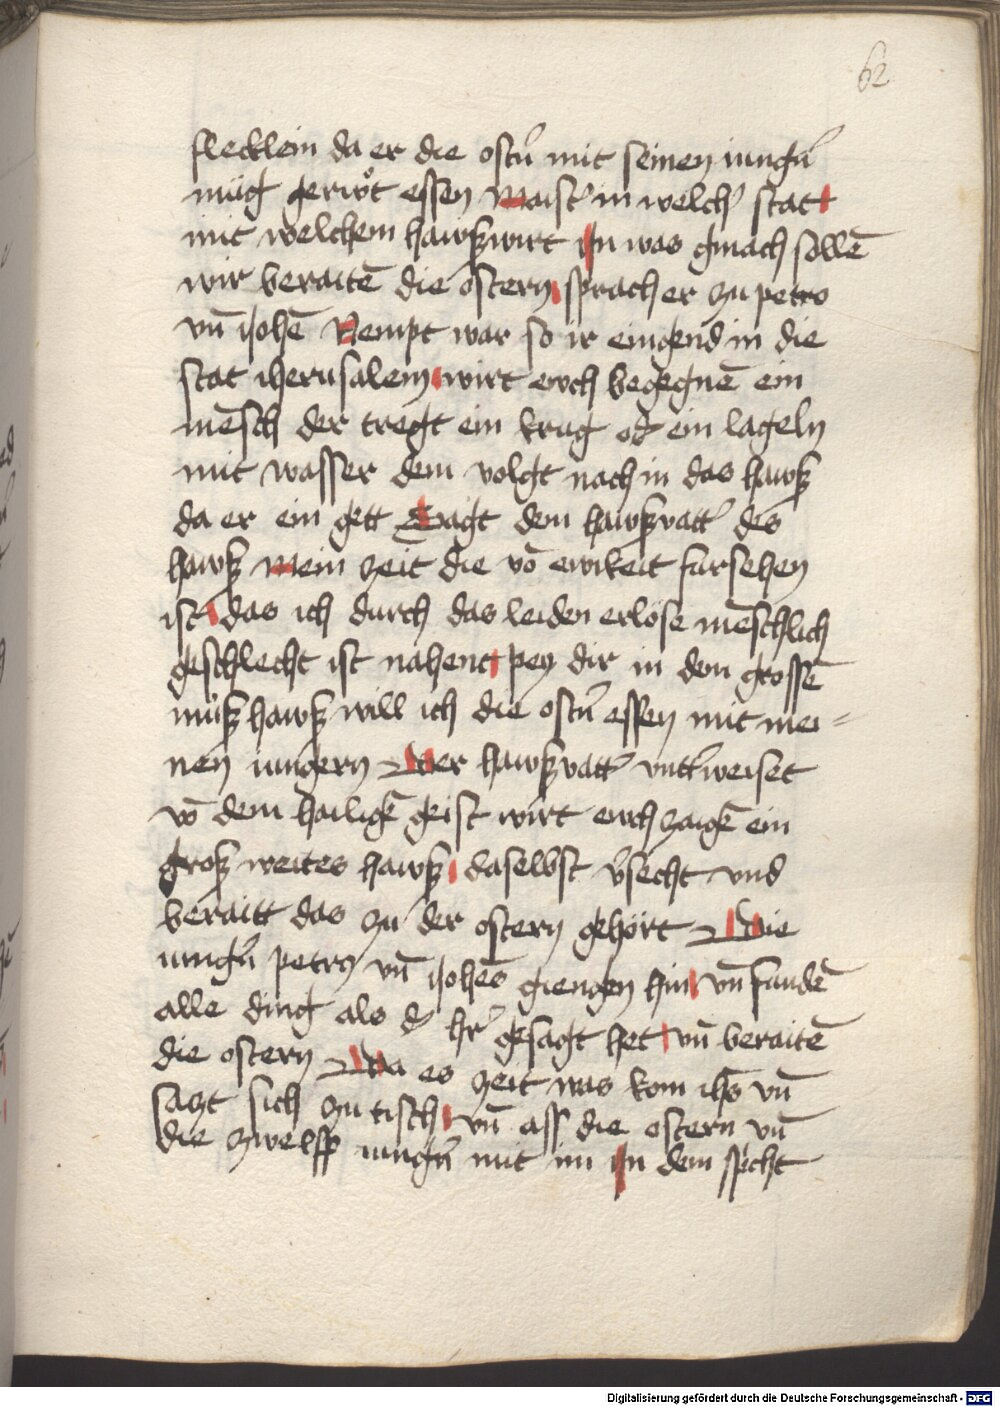 62
flecklein da er die ostern̄ mit seinen iungn̄
müg gerwͦt essen Maist' in welch' stat
mit welchem hawßwirt In was gmach sollē
wir beraitē die ostern sprach er zu petro
vn̄ iohē Nempt war so ir eingend in die
stat iherusalem wirt ewch begegnē ein
mēsch der tregt ein krug od' ein lageln
mit wasser dem volgt nach in das hawß
da er ein gett Sagt dem hawßvatt' des
hawß Mein zeit die vō ewikeit fursehen
ist das ich durch das leiden erlöse mēschlich
geschlecht ist nahent pey dir in dem grossē
müßhawß will ich die ostn̄ essen mit mei=
nen iungern Der hawßvatt' vntt'weiset
vō dem hailigē geist wirt euch zaigē ein
groß weites hawß daselbst v'secht vnd
beraitt das zu der ostern gehört Die
iungn̄ petrn vn̄ iohēs giengen hin vn̄ fandē
alle ding als d' hr' gesagt het vn̄ beraitē
die ostern Da es zeit was kom ihs̄ vn̄
saczt sich zu tisch vn̄ ass die ostern vn̄
die zwelff iungn̄ mit im In dem specht
Digitalisierung gefördert durch die Deutsche Forschungsgemeinschaft - DFG